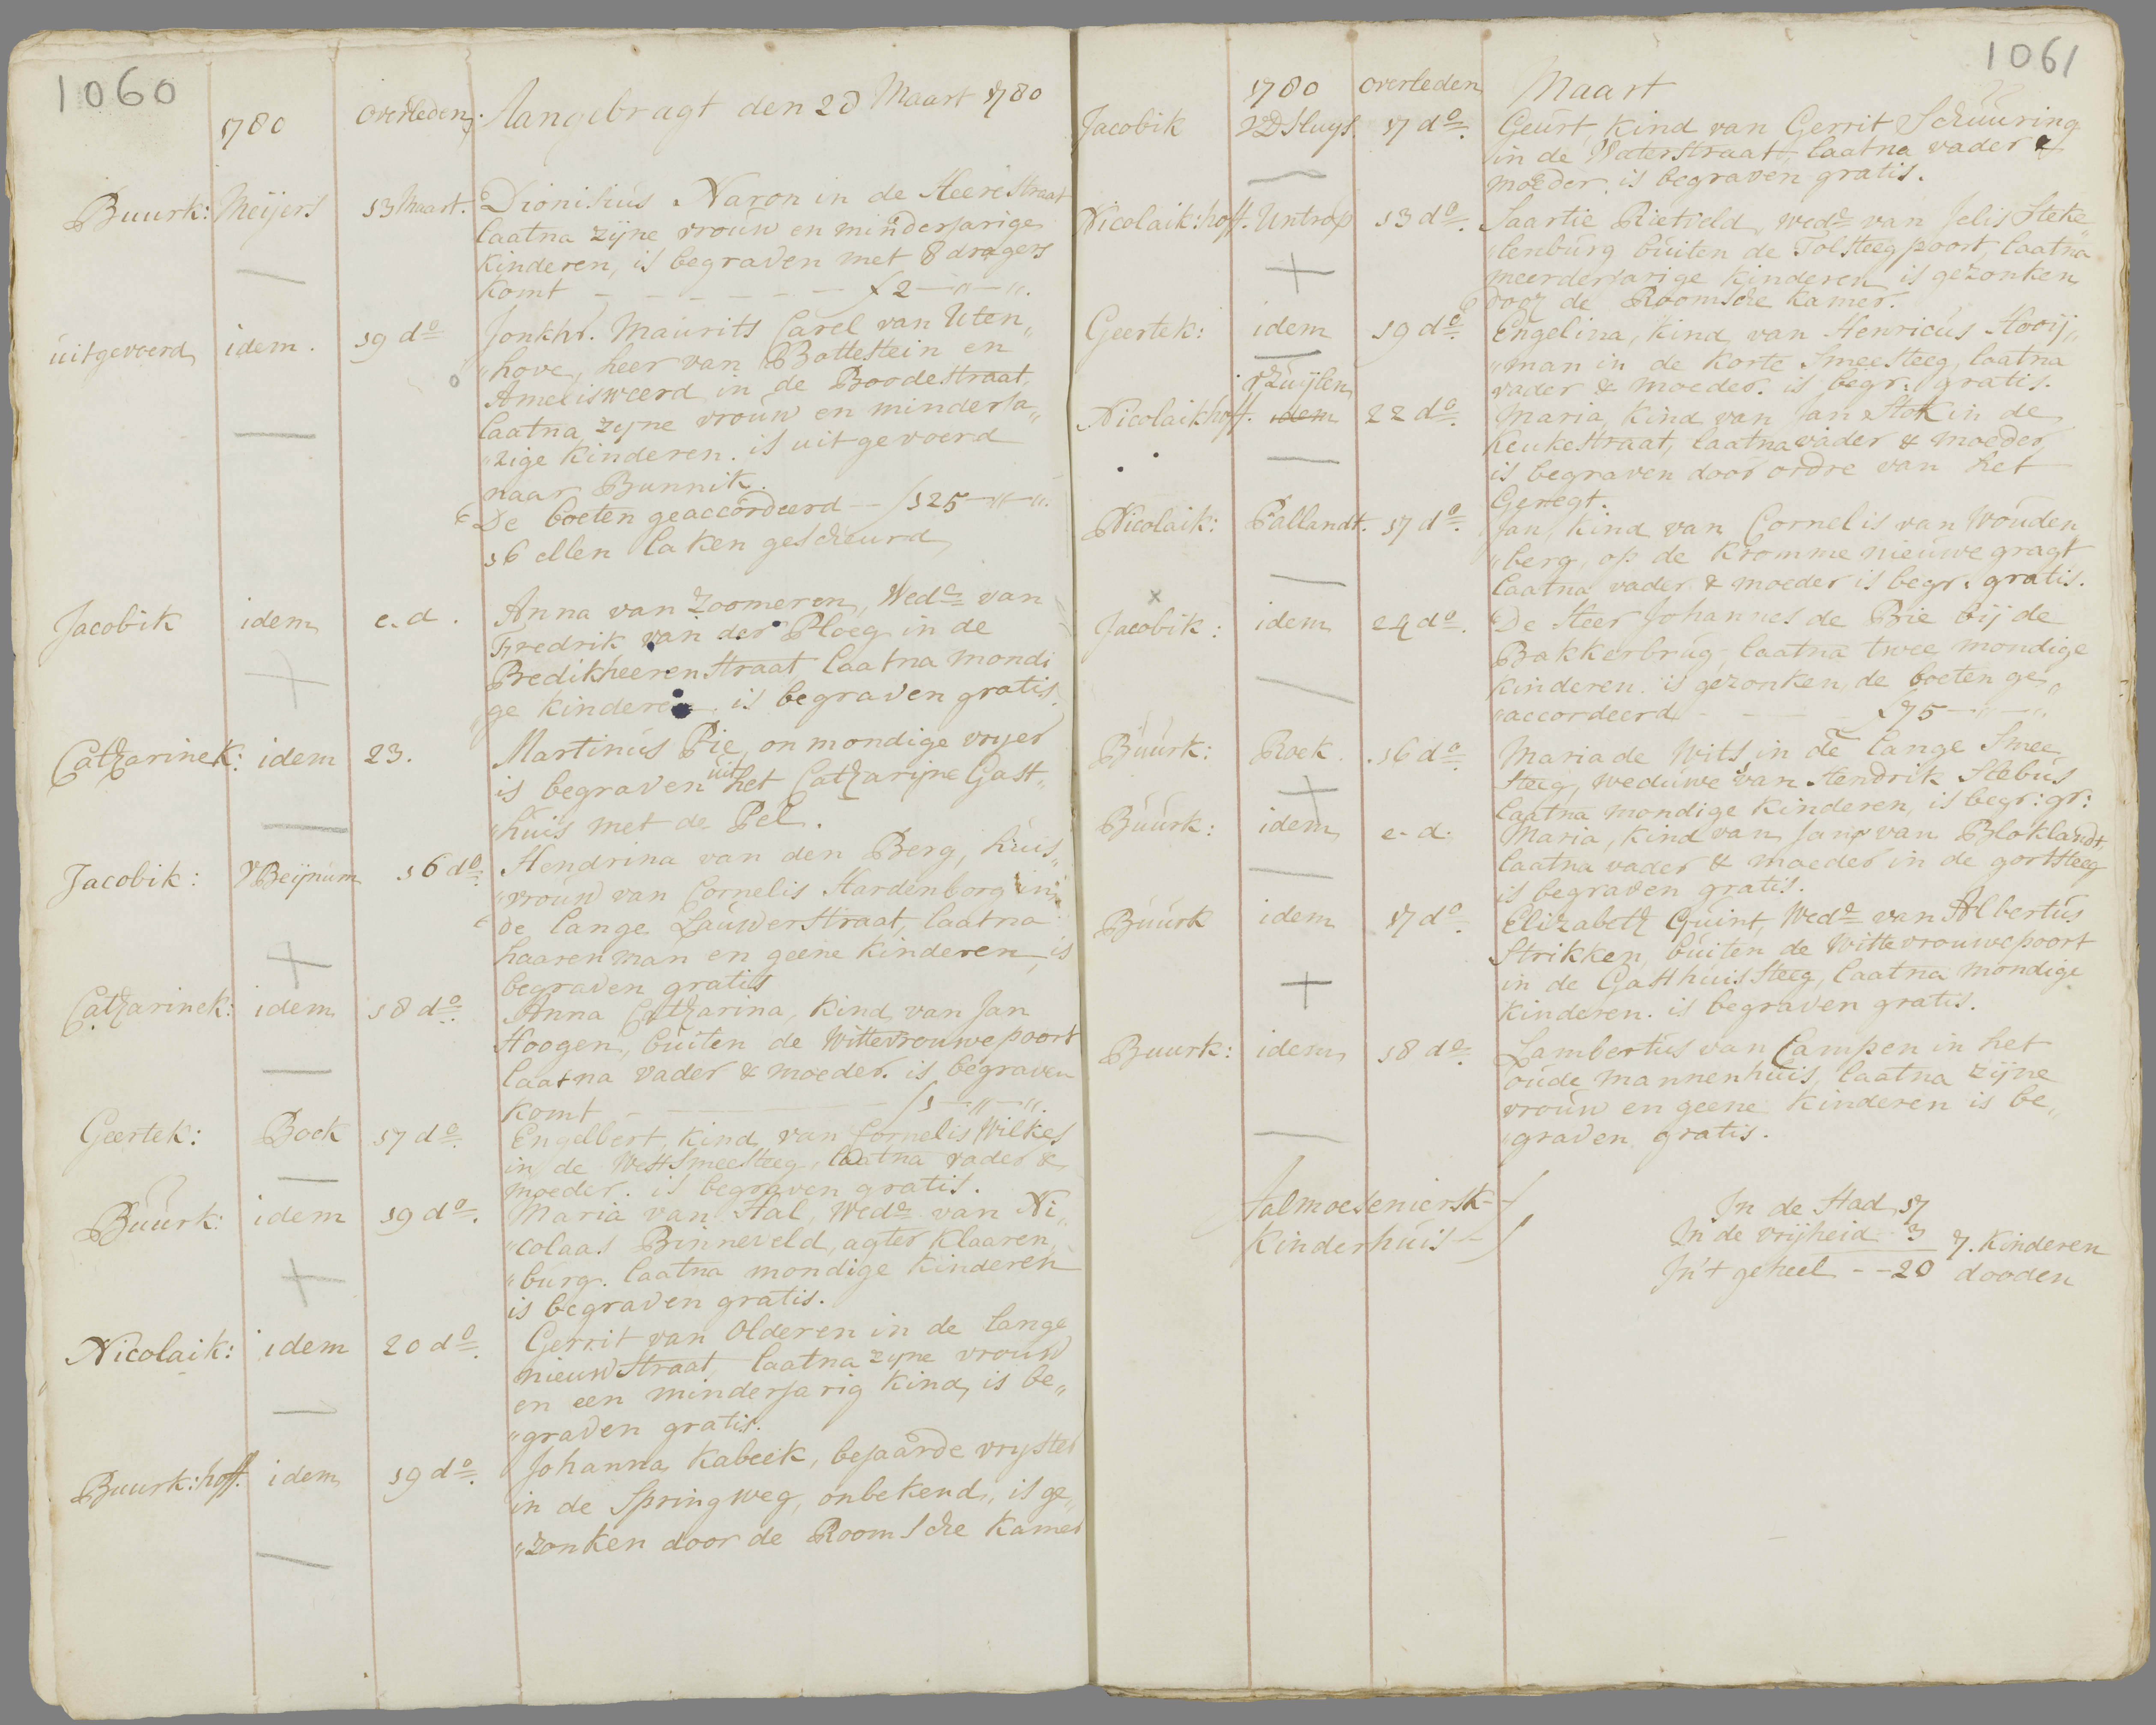 1060
1780 overleden. Aangebragt den 28 Maart 1780
Buurk: Meijers 13 Maart. Dionisius Naron in de Heerestraat
laatna zijne vrouw en minderjarige
kinderen, is begraven met 8 dragers
komt - - - - - - - f 2 —"—".
uitgevoerd idem. 19 do Jonkhr. Maurits Carel van Uten„
„hove, heer van Bottestein en
Amelisweerd in de Boodestraat,
laatna zijne vrouw en minderja„
„rige kinderen. is uitgevoerd
naar Bunnik.
De boeten geaccordeerd — f 125 —"—".
16 ellen laken gescheurd
Jacobik idem e. d. Anna van Zoomeren, Wede van
Fredrik van der Ploeg in de
Predikheerenstraat laatna mondi
ge kinderen. is begraven gratis.
Catharinek: idem 23. Martinus Pie, onmondige vryer
is begraven uit het Catharijne Gast„
„huis met de Pel.
Jacobik: V Beijnum 16 do Hendrina van den Berg, huis„
„vrouw van Cornelis Hardenborg in
de lange Lauwerstraat, laatna
haaren man en geene kinderen, is
begraven gratis
Catharinek: idem 18 do. Anna Catharina, kind van Jan
Hoogen, buiten de Wittevrouwepoort
laatna vader & moeder. is begraven
komt - — — — f 1 —"—".
Geertek: Boek 17 do. Engelbert, kind van Cornelis Wilkes
in de Westsmeesteeg, laatna vader &
moeder. is begraven gratis.
Buurk: idem 19 do. Maria van Stal, Wede van Ni„
„colaas Binneveld, agter Klaaren„
„burg. laatna mondige kinderen
is begraven gratis.
Nicolaik: idem 20 do. Gerrit van Olderen in de lange
nieuwstraat, laatna zijne vrouw
en een minderjarig kind, is be„
„graven gratis.
Buurk: hoff. idem 19 do. Johanna Kabeek, bejaarde vryster
in de Springweg, onbekend, is ge„
„zonken door de Roomsche kamer
1061
1780 overleden Maart
Jacobik VD Sluys 17 do. Geurt, kind van Gerrit Schuuring
in de Waterstraat, laatna vader &
moeder. is begraven gratis.
Nicolaik: hoff. Untrop 13 do. Saartie Rietveld, wede van Jelis Steke„
„lenburg buiten de Tolsteegpoort, laatna
meerderjarige kinderen is gezonken
door de Roomsche Kamer.
Geertek: idem 19 do. Engelina, kind van Henricus Hooij„
„man in de korte Smeesteeg, laatna
vader & moeder. is begr. gratis.
V Zuijlen
Nicolaikhoff. idem 22 do. Maria, kind van Jan Stok in de
Keukestraat, laatna vader & moeder
is begraven door ordre van het
Geregt.
Nicolaik: Pallandt. 17 do. Jan, kind van Cornelis van Wouden
„berg, op de Kromme nieuwe gragt
laatna vader & moeder is begr. gratis.
Jacobik: idem 24 do. De Heer Johannes de Brie bij de
Bakkerbrug, laatna twee mondige
kinderen. is gezonken, de boeten ge„
„accordeerd - - - f 75 —"—".
Buurk: Roek. 16 do. Maria de Wits, in de lange Smee
steeg, weduwe van Hendrik Stebus
laatna mondige kinderen, is begr: gr:
Buurk: idem e. d. Maria, kind van Jan van Bloklandt,
laatna vader & moeder in de gortsteeg
is begraven gratis.
Buurk idem 17 do. Elizabeth Quint, Wede van Albertus
Strikken, buiten de Wittevrouwepoort
in de Gasthuissteeg, laatna mondige
kinderen. is begraven gratis.
Buurk: idem 18 do. Lambertus van Campen in het
oude mannenhuis, laatna zijne
vrouw en geene kinderen is be„
„graven gratis.
Aalmoeseniersk-
Kinderhuis -
In de Stad 17
In de vrijheid 3 7. Kinderen
In't geheel - - 20 dooden